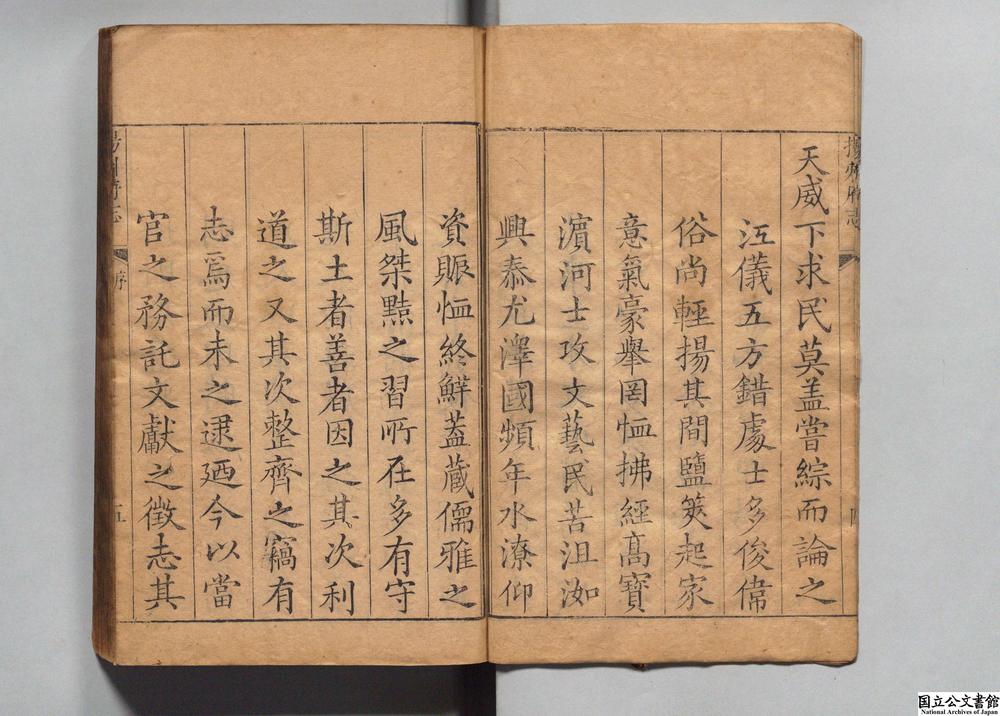 天威下求民莫盖嘗綜而論之
江儀五方錯處士多俊偉
俗尚輕揚其間鹽筴起家
意氣豪舉罔恤拂經高寶
濵河士攻文藝民苦沮洳
興泰尤澤國頻年水潦仰
資賑恤終鮮葢蔵儒雅之
風桀黠之習所在多有守
斯土者善者因之其次利
道之又其次整齊之竊有
志焉而未之逮廼今以當
官之務託文獻之徵志其
揚州府志
序
五
国立公文書館
National Archives of Japan